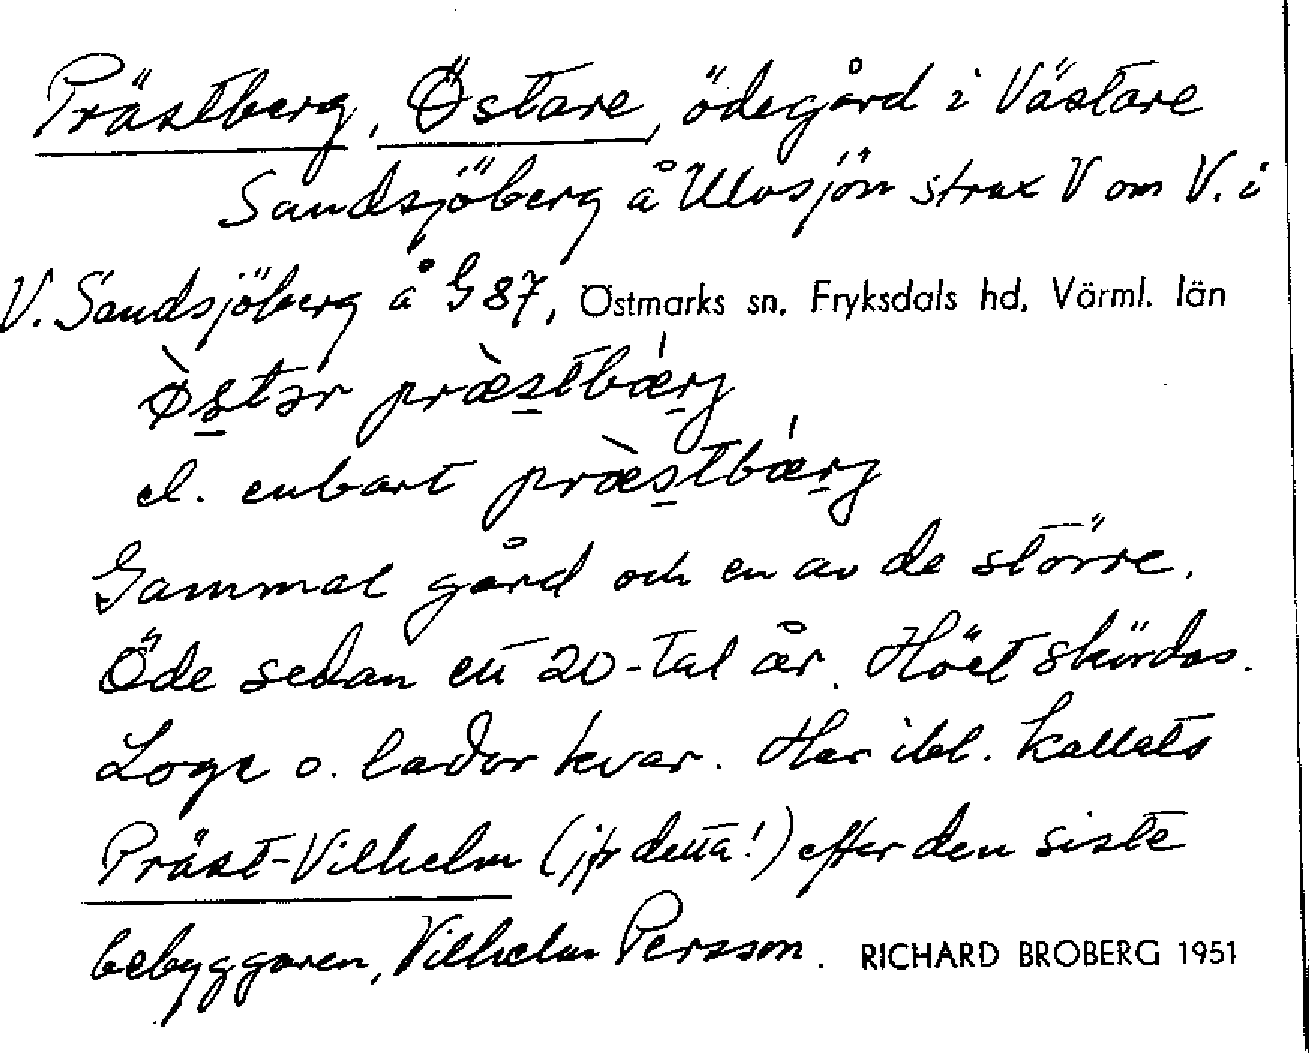 Prästberg, Östare, ödegård i Västare
Sandsjöberg å Ulvsjön strax V om V. i
V. Sandsjöberg å G 87, Östmarks sn, Fryksdals hd, Värml. län
ø̀stər præ̀stbǽrj
el. enbart præ̀stbǽrj
Gammal gård och en av de större.
Öde sedan ett 20-tal år. Höet skördas.
Loge o. lador kvar. Har ibl. kallats
Präst-Vilhelm (jfr detta!) efter den siste
bebyggaren, Vilhelm Persson. RICHARD BROBERG 1951